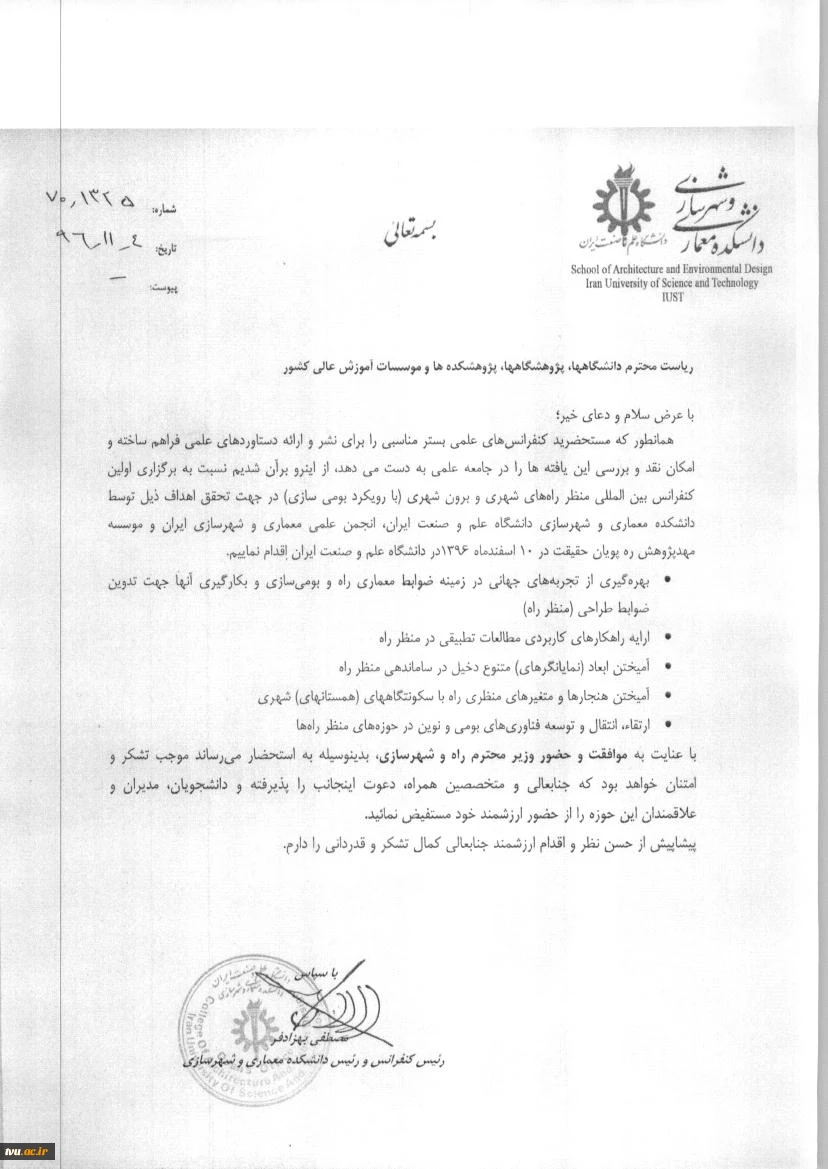 دانشکده معماری
و شهرسازی
دانشگاه علم و صنعت ایران
School of Architecture and Environmental Design
Iran University of Science and Technology
IUST
بسمه تعالی
شماره: ۷۰٫۱۳۲۵
تاریخ: ۹۶_۱۱_۴
پیوست: _
ریاست محترم دانشگاهها، پژوهشگاهها، پژوهشکده ها و موسسات آموزش عالی کشور
با عرض سلام و دعای خیر؛
همانطور که مستحضرید کنفرانس‌های علمی بستر مناسبی را برای نشر و ارائه دستاوردهای علمی فراهم ساخته و
امکان نقد و بررسی این یافته ها را در جامعه علمی به دست می دهد، از اینرو برآن شدیم نسبت به برگزاری اولین
کنفرانس بین المللی منظر راه‌های شهری و برون شهری (با رویکرد بومی سازی) در جهت تحقق اهداف ذیل توسط
دانشکده معماری و شهرسازی دانشگاه علم و صنعت ایران، انجمن علمی معماری و شهرسازی ایران و موسسه
مهدپژوهش ره پویان حقیقت در ۱۰ اسفندماه ۱۳۹۶در دانشگاه علم و صنعت ایران اقدام نماییم.
• بهره‌گیری از تجربه‌های جهانی در زمینه ضوابط معماری راه و بومی‌سازی و بکارگیری آنها جهت تدوین
ضوابط طراحی (منظر راه)
• ارایه راهکارهای کاربردی مطالعات تطبیقی در منظر راه
• آمیختن ابعاد (نمایانگرهای) متنوع دخیل در ساماندهی منظر راه
• آمیختن هنجارها و متغیرهای منظری راه با سکونتگاههای (همستانهای) شهری
• ارتقاء، انتقال و توسعه فناوری‌های بومی و نوین در حوزه‌های منظر راه‌ها
با عنایت به موافقت و حضور وزیر محترم راه و شهرسازی، بدینوسیله به استحضار می‌رساند موجب تشکر و
امتنان خواهد بود که جنابعالی و متخصصین همراه، دعوت اینجانب را پذیرفته و دانشجویان، مدیران و
علاقمندان این حوزه را از حضور ارزشمند خود مستفیض نمائید.
پیشاپیش از حسن نظر و اقدام ارزشمند جنابعالی کمال تشکر و قدردانی را دارم.
با سپاس
مصطفی بهزادفر
رئیس کنفرانس و رئیس دانشکده معماری و شهرسازی
tvu.ac.ir